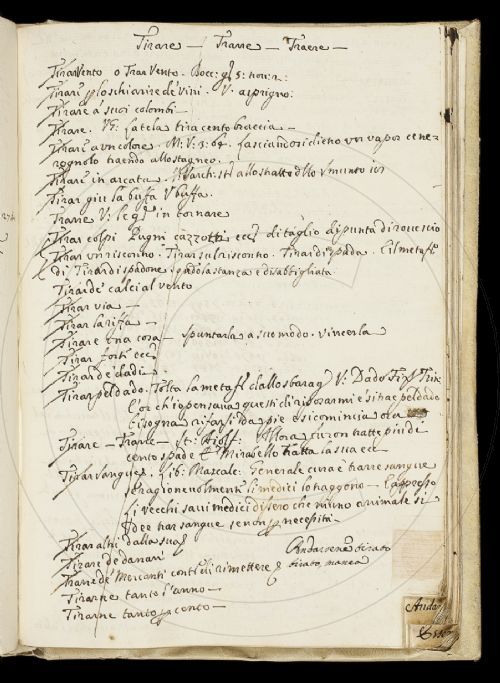 Tirare — Trarre — Traere —
Tirar Vento o Trar Vento. Bocc: g. 5: nov: 2:
Tirar lo schiarire de' vini. V. asprigno:
Tirare a' suoi colombi —
Tirare. VS: fa tela tira cento braccia —
Tirar a un colore. M: V: 3: 64. fasciandosi dietro un vapor cene-
rognolo traendo allo stagneo.
Tirar in arcata.
Tirar giu la buffa V buffa.
Trarre V: leg in tornare
Tirar colpi Pugni cazzotti ecc di taglio di punta di rovescio
Tirar un riscontro. Tirar sul riscontro. Tirar di spada. E il metaf
di Tirar di spadone. per la stanza è disabbigliata
Tirar de' calci al vento
Tirar via —
Tirar la riffa —
Tirare una cosa — spuntarla a suo modo. vincerla
Tirar forte ecc
Tirar de' dadi —
Tirar pel dado. Tolta la metaf dallo sbaragl V: Dado
Cor ch'io pensava questi di riposarmi e si trae pel dado
bisogna rifarsi da pie e si comincia ora
Tirare — Trarre — st: Aiolf: Allora furon tratte più di
cento spade E Mirabello tratta la sua ecc
Tirar Sangue. lib: Mascalc: Generale cura è trarre sangue
e ragionevolment li medici lo traggono — E appresso
li vecchi savi medici dissero che niuno animale si
dee trar sangue se non necessità —
Tirar altri dalla sua
Tirare de danari Andarsene tirato
Trarre de' Mercanti cont: di rimettere tirato, manca
Tirarne tanto l'anno —
Tirarne tanto cento —
Anda